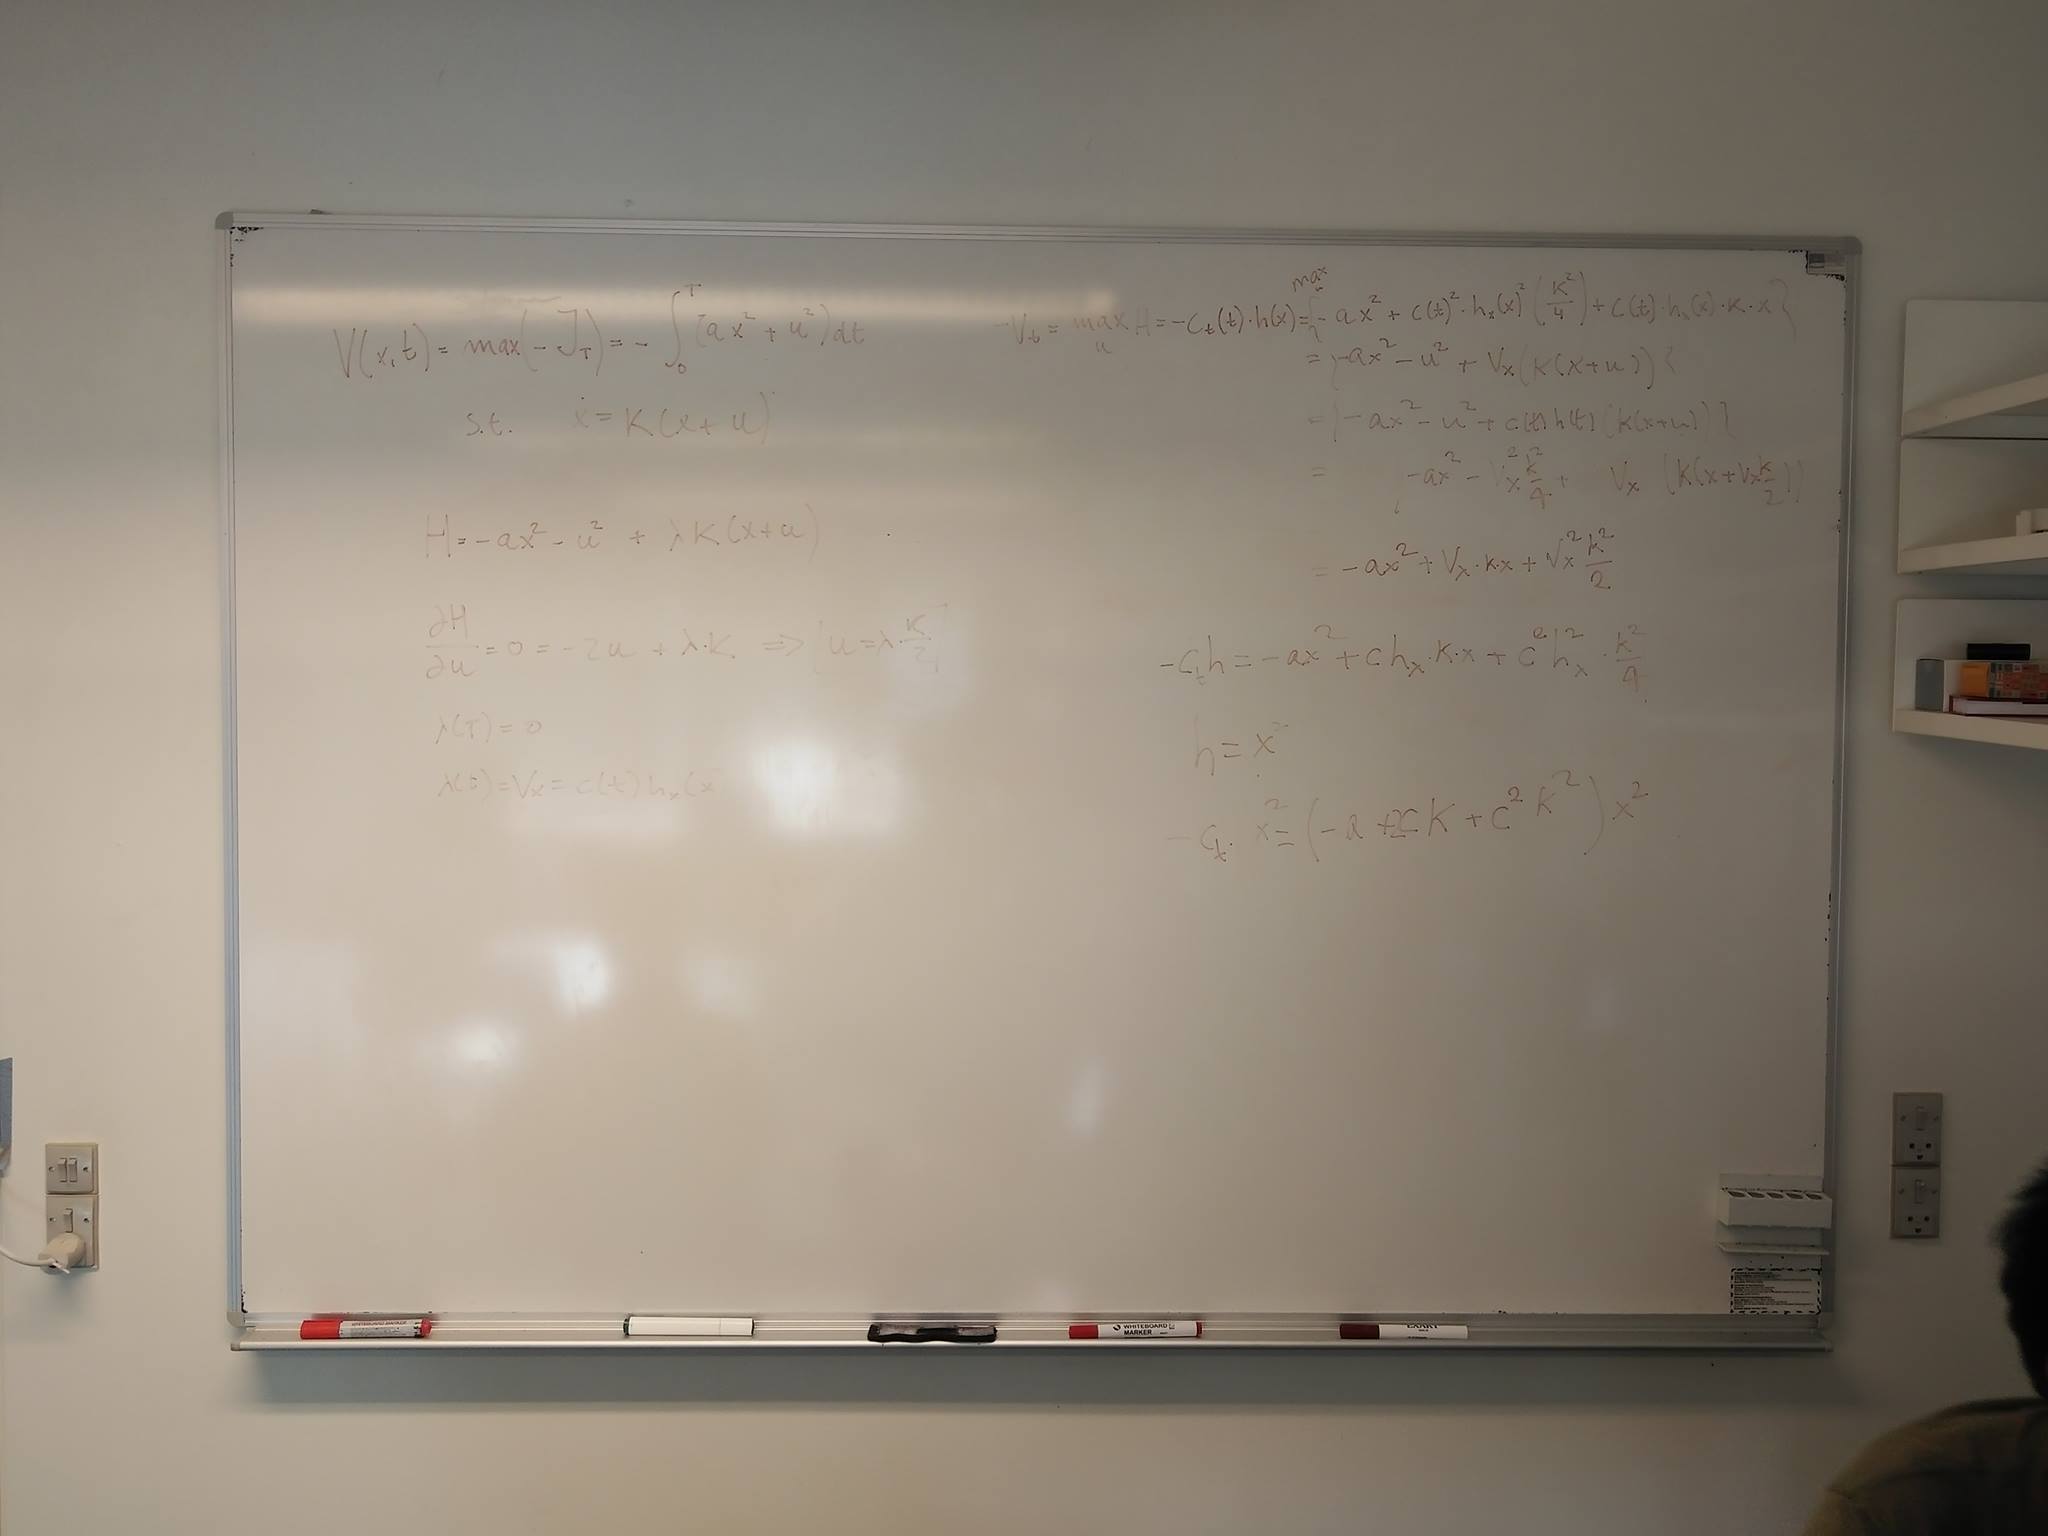 V(x,t) = max(-J_T) = - ∫_0^T (ax² + u²)dt
s.t. ẋ = K(x+u)
H = -ax² - u² + λK(x+u)
∂H/∂u = 0 = -2u + λ·K => [u = λ·K/2]
λ(T) = 0
λ(t) = Vx = c(t) hx(x
-Vt = max_u H = -Ct(t)·h(x) = max_u {-ax² + c(t)²·hx(x)² (K²/4) + c(t)·hx(x)·K·x}
= {-ax² - u² + Vx(K(x+u))}
= {-ax² - u² + c(t)h(t)(K(x+u))}
= {-ax² - Vx² K²/4 + Vx (K(x+Vx K/2))
= -ax² + Vx·K·x + Vx² K²/2
-Ct h = -ax² + C hx·K·x + C² hx²·K²/4
h = x²
-Ct· x² = (-a + 2CK + C² K²) x²
WHITEBOARD MARKER